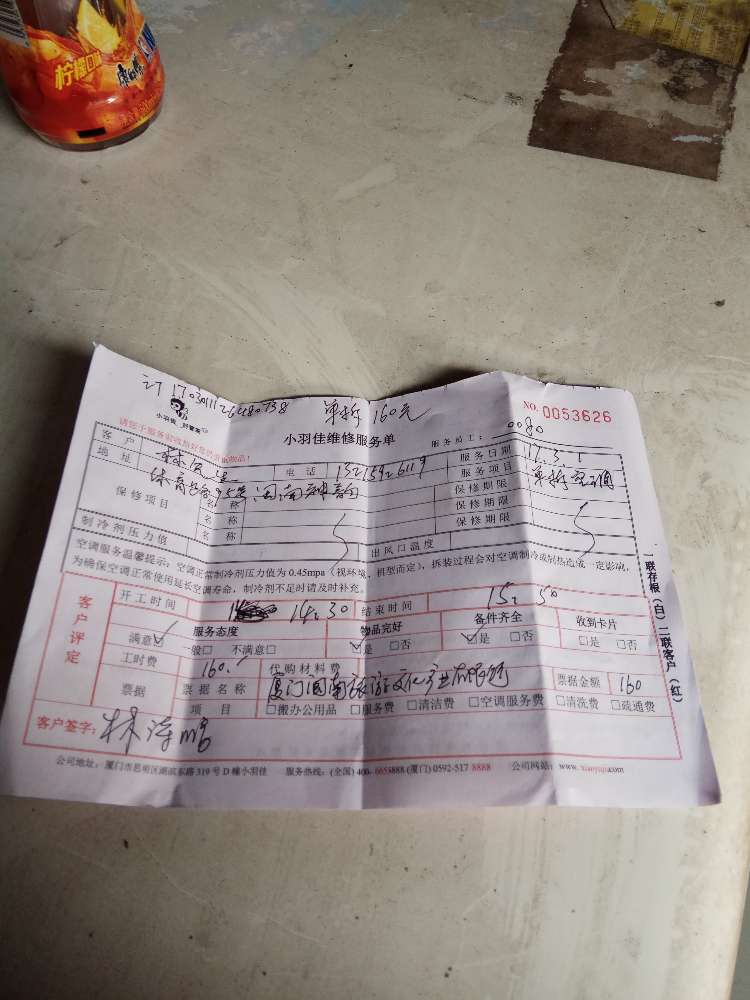 柠檬口味
康师傅
订 1703011126480738 单拆160元
NO. 0053626
小羽佳 好管家
小羽佳维修服务单
服务员工: 0080
客户 林先生 电话 13215926119 服务日期 17.3.1
地址 闽南神韵 服务项目 单拆空调
保修项目 名称 保修期限
名称 保修期限
名称 保修期限
制冷剂压力值 出风口温度
空调服务温馨提示:空调正常制冷剂压力值为 0.45mpa(视环境、机型而定),拆装过程会对空调制冷或制热造成一定影响,
为确保空调正常使用延长空调寿命,制冷剂不足时请及时补充。
客户评定
开工时间 14:30 结束时间 15:50
服务态度 物品完好 备件齐全 收到卡片
满意☑ 一般□ 不满意□ ☑是 □否 ☑是 □否 □是 □否
工时费 160. 代购材料费
票据 票据名称 厦门闽南旅游文化产业有限公司 票据金额 160
项目 □搬办公用品 □服务费 □清洁费 □空调服务费 □清洗费 □疏通费
客户签字: 林
一联存根(白)二联客户(红)
公司地址:厦门市思明区湖滨东路 319 号 D 栋小羽佳 服务热线:(全国) 400-6653888 (厦门) 0592-517 8888 公司网站: www.xiaoyujia.com